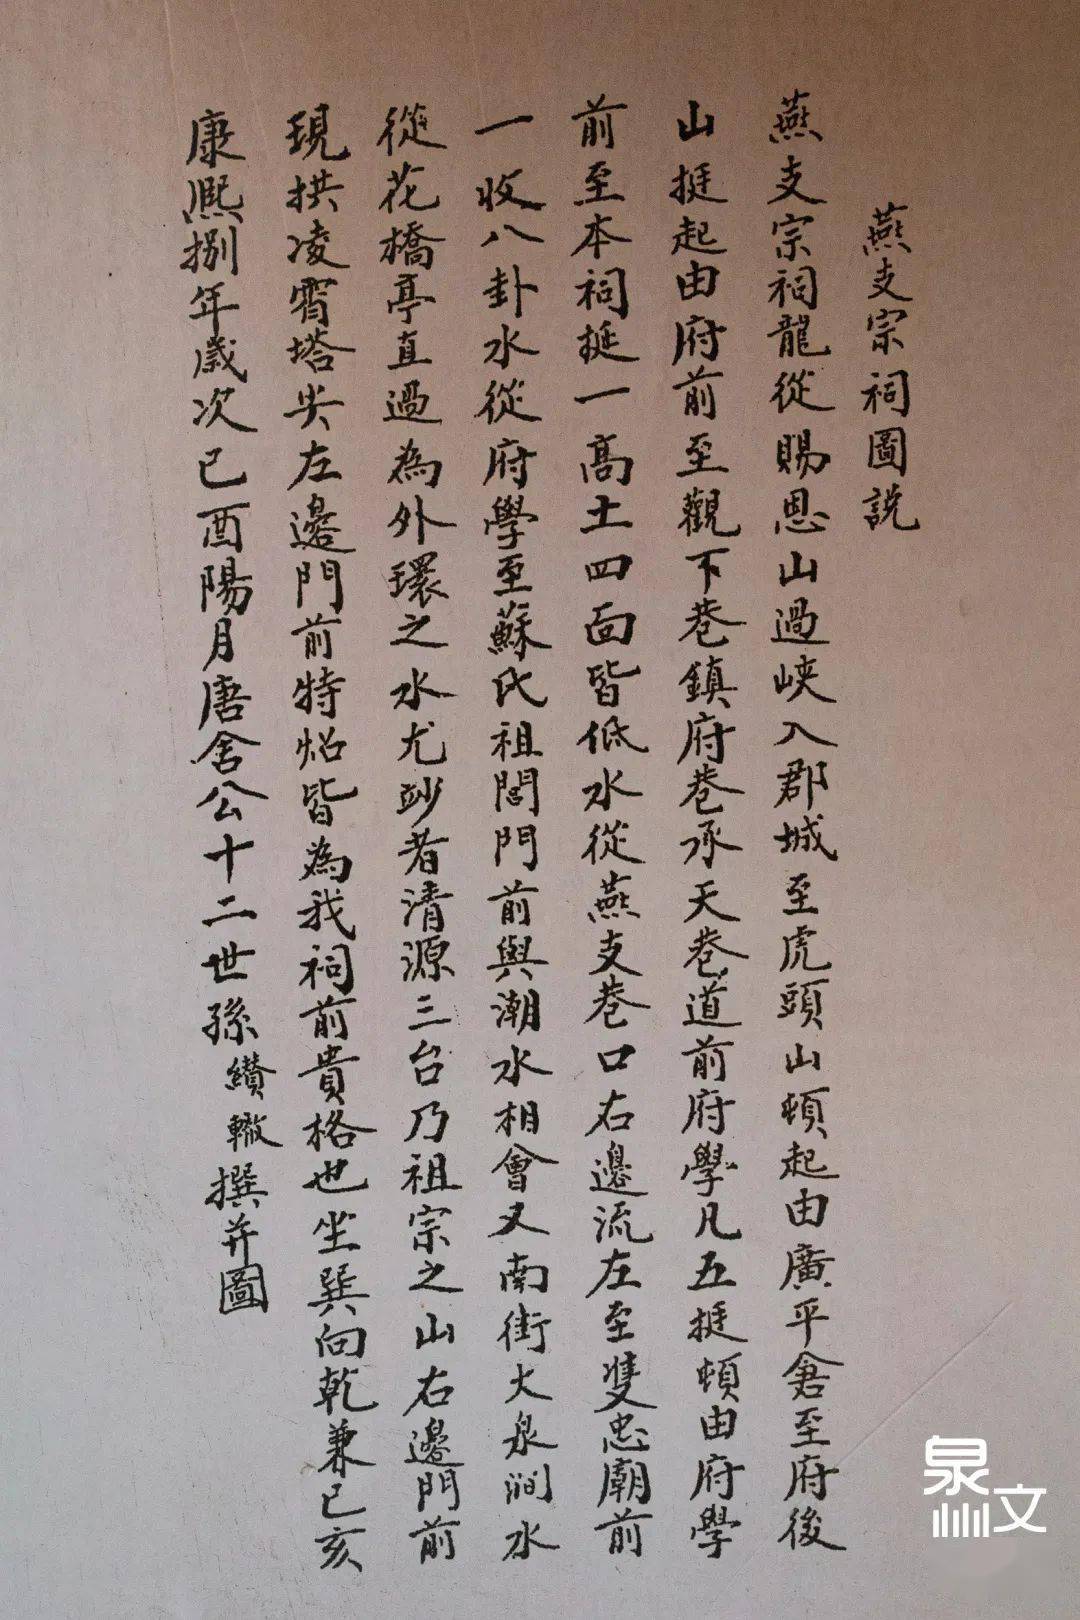 燕支宗祠圖説
燕支宗祠龍從賜恩山過峽入郡城至虎頭山頓起由廣平倉至府後
山挺起由府前至觀下巷鎮府巷承天巷道前府學凡五挺頓由府學
前至本祠挺一高土四面皆低水從燕支巷口右邊流左至雙忠廟前
一收八卦水從府學至蘇氏祖閭門前與潮水相會又南街大泉澗水
從花橋亭直過為外環之水尤妙者清源三台乃祖宗之山右邊門前
現拱凌霄塔尖左邊門前特炤皆為我祠前貴格也坐巽向乾兼巳亥
康熙捌年歲次己酉陽月唐舍公十二世孫纘轍撰并圖
泉州文